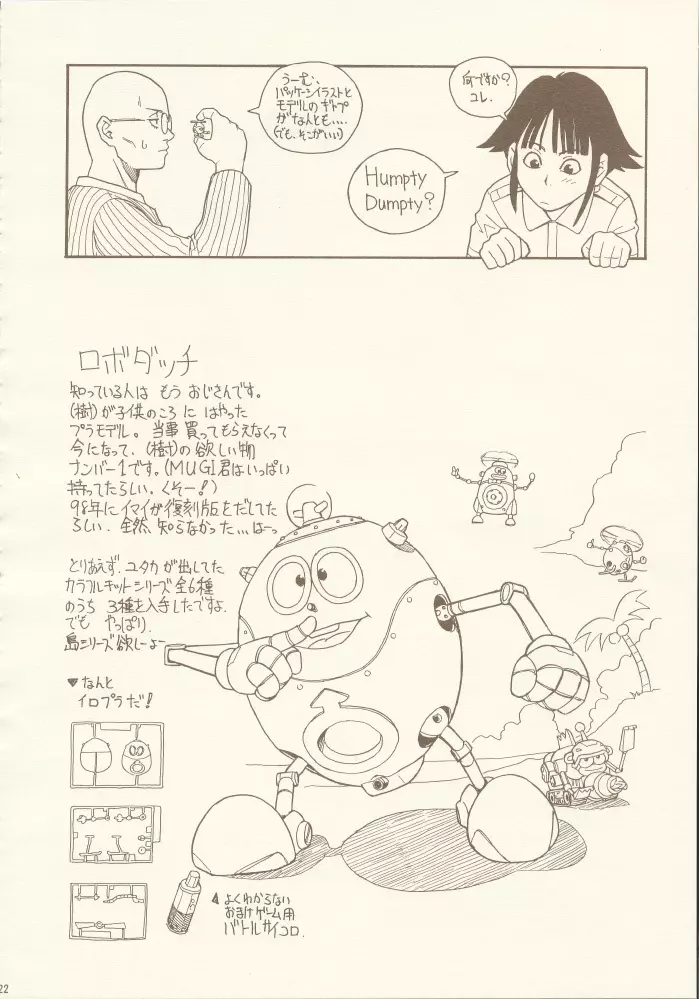 うーむ、
パッケージイラストと
モデルのギャプ
がなんとも‥‥
(でも、そこがいい)
何ですか?
コレ.
Humpty
Dumpty?
ロボダッチ
知っている人は もう おじさんです。
(樹)が子供のころ に はやった
プラモデル。当時 買ってもらえなくって
今になって、(樹)の欲しい物
ナンバー1です。(MUGI君はいっぱい
持ってたらしい。くそー!)
98年にイマイが復刻版をだしてた
らしい. 全然、知らなかった...はーっ
とりあえず. ユタカ が 出してた
カラフルキットシリーズ全6種
のうち 3種を入手したですよ.
でも やっぱり.
島シリーズ欲しーよー
▼なんと
イロプラだ!
◀ よくわからない
おまけゲーム用
バトルサイコロ.
22